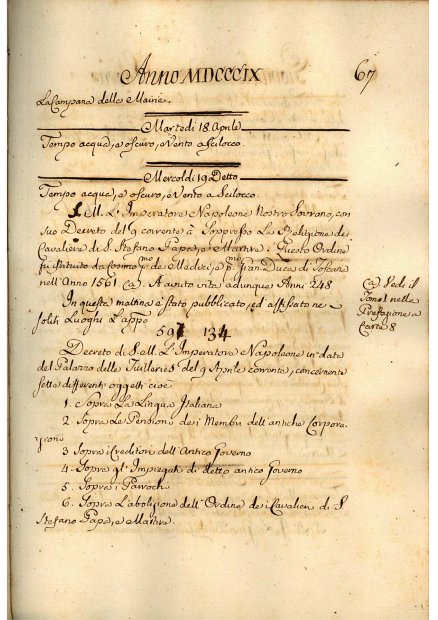 Anno MDCCCIX
67
La Campana delle Maine.
Martedi 18. Aprile
Tempo acqua, e oscuro, e Vento a Scilocco.
Mercoldi 19 Detto
Tempo acqua, e oscuro, e Vento a Scilocco.
S. M. L'Imperatore Napoleone Nostro Sovrano, con
suo Decreto del 9 corrente à soppresso La Religione dei
Cavalieri di S. Stefano Papa, e Martire. Questo Ordine
fu istituito da Cosimo Pmo de Medici, e pmo Gran-Duca di Toscana
nell'Anno 1561 (a). A avuto vita adunque Anni 248
In questa mattina è stato pubblicato, ed affissato ne
soliti Luoghi L'appo
597 134
Decreto di S. M. L'Imperatore Napoleone in data
del Palazzo delle Tuilleries del 9 Aprile corrente, concernente
sette differenti oggetti cioè
1. Sopra La Lingua Italiana
2. Sopra Le Pensioni dei Membri dell'antiche Corpora-
zioni
3 Sopra i Creditori dell'Antico Governo
4 - Sopra gl'Impiegati di detto antico Governo
5. Sopra i Parrochi
6. Sopra L'abolizione dell'Ordine dei Cavalieri di S
Stefano Papa, e Martire
(a) Vedi il
Tomo 1 nella
Prefazione a
Carta 8